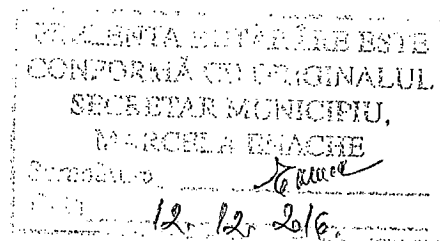 PREZENTA HOTĂRÂRE ESTE
CONFORMĂ CU ORIGINALUL
SECRETAR MUNICIPIU,
MARCELA ENACHE
Semnătura
12. 12. 2016.